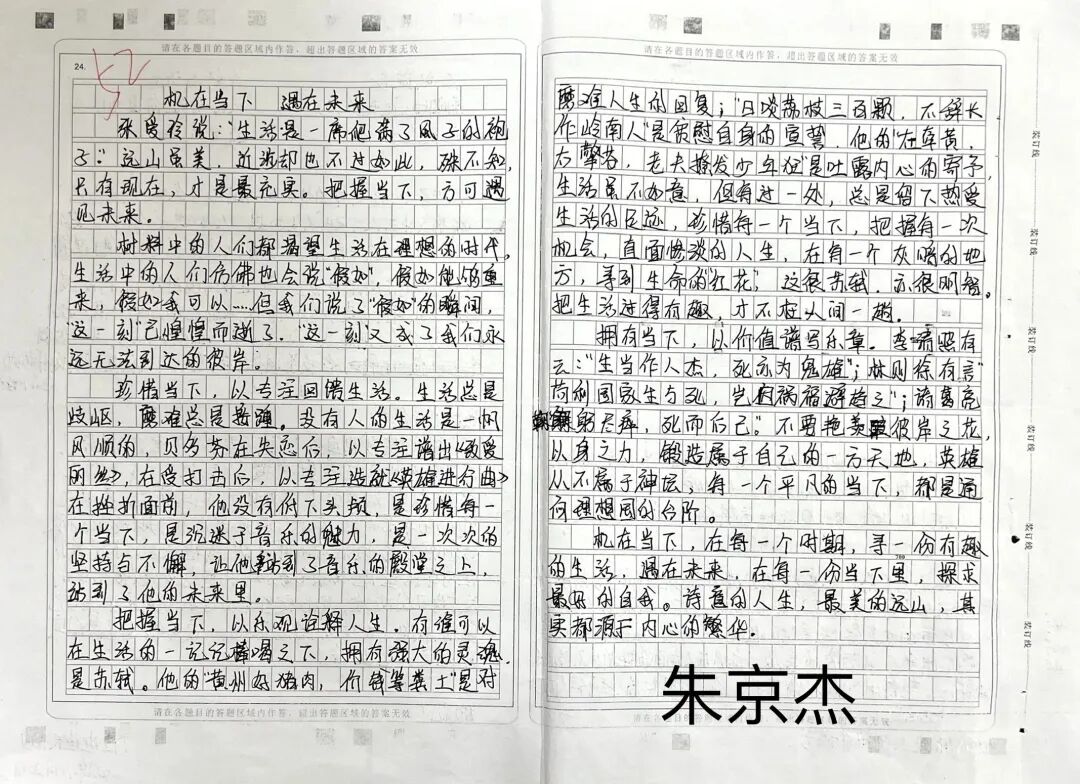 请在各题目的答题区域内作答，超出答题区域的答案无效
24.
52
机在当下 遇在未来
张爱玲说："生活是一席爬满了虱子的袍
子。"远山虽美，近视却也不过如此，殊不知，
只有现在，才是最充实。把握当下，方可遇
见未来。
材料中的人们都渴望生活在理想的时代。
生活中的人们仿佛也会说"假如"，假如能够重
来，假如我可以……但我们说了"假如"的瞬间，
"这一刻"已惶惶而逝了。"这一刻"又成了我们永
远无法到达的彼岸。
珍惜当下，以专注回馈生活。生活总是
歧岖，磨难总是接踵。没有人的生活是一帆
风顺的，贝多芬在失恋后，以专注谱出《致爱
丽丝》，在受打击后，以专注造就《英雄进行曲》
在挫折面前，他没有低下头颅，是珍惜每一
个当下，是沉迷于音乐的魅力，是一次次的
坚持与不懈，让他站到了音乐的殿堂之上，
站到了他的未来里。
把握当下，以乐观诠释人生。有谁可以
在生活的一记记棒喝之下，拥有强大的灵魂，
是苏轼。他的"黄州好猪肉，价钱等粪土"是对
请在各题目的答题区域内作答，超出答题区域的答案无效
请在各题目的答题区域内作答，超出答题区域的答案无效
磨难人生的回复；"日啖荔枝三百颗，不辞长
作岭南人"是慰自身的宣誓，他的"左牵黄，
右擎苍，老夫聊发少年狂"是吐露内心的寄予，
生活虽不如意，但每过一处，总是留下热爱
生活的足迹，珍惜每一个当下，把握每一次
机会，直面惨淡的人生，在每一个灰暗的地
方，寻到生命的"红花"，这很苏轼，亦很明智。
把生活过得有趣，才不在人间一趟。
拥有当下，以价值谱写乐章。李清照有
云："生当作人杰，死亦为鬼雄"；林则徐有言"
苟利国家生与死，岂因祸福避趋之"；诸葛亮
鞠躬尽瘁，死而后已。"不要艳羡彼岸之花，
以身之力，锻造属于自己的一方天地，英雄
从不属于神坛，每一个平凡的当下，都是通
向理想国的台阶。
机在当下，在每一个时期，寻一份有趣
700
的生活，遇在未来，在每一份当下里，探求
最好的自我。诗意的人生，最美的远山，其
实都源于内心的繁华。
请在各题目的答题区域内作答，超出答题区域的答案无效
朱京杰
装订线
装订线
装订线
装订线
装订线
装订线